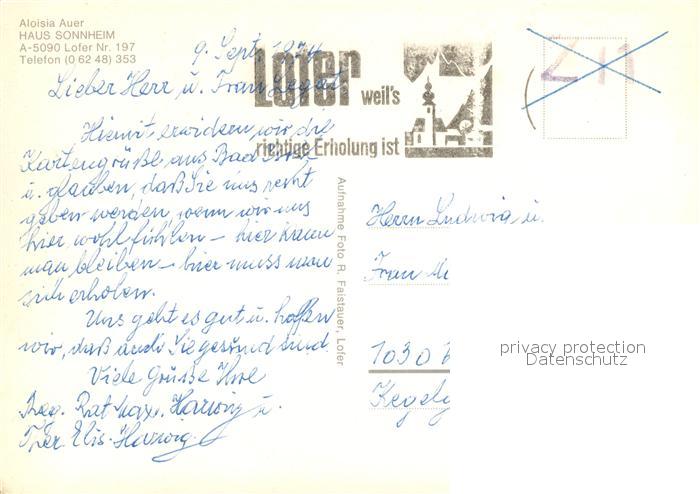 Aloisia Auer
HAUS SONNHEIM
A-5090 Lofer Nr. 197
Telefon (0 62 48) 353
9. Sept. 1974
Lofer weil's
richtige Erholung ist
Lieber Herr u. Frau
Hiemit erwidern wir die
Kartengrüße aus Bad
u. glauben, daß Sie uns recht
geben werden, wenn wir uns
hier wohl fühlen – hier kann
man bleiben – hier muss man
sich erholen.
Uns geht es gut u. hoffen
wir, daß auch Sie gesund sind.
Viele Grüße Ihre
Reg. Rat Max. Harwig u.
Elis. Harwig
Aufnahme Foto R. Faistauer, Lofer
Herrn Ludwig u.
Frau
1030
privacy protection
Datenschutz